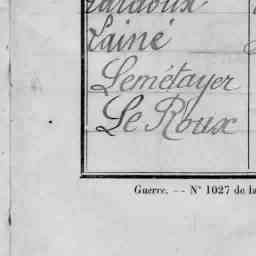 Lainé
Lemétayer
Le Roux
Guerre. -- N° 1027 de la